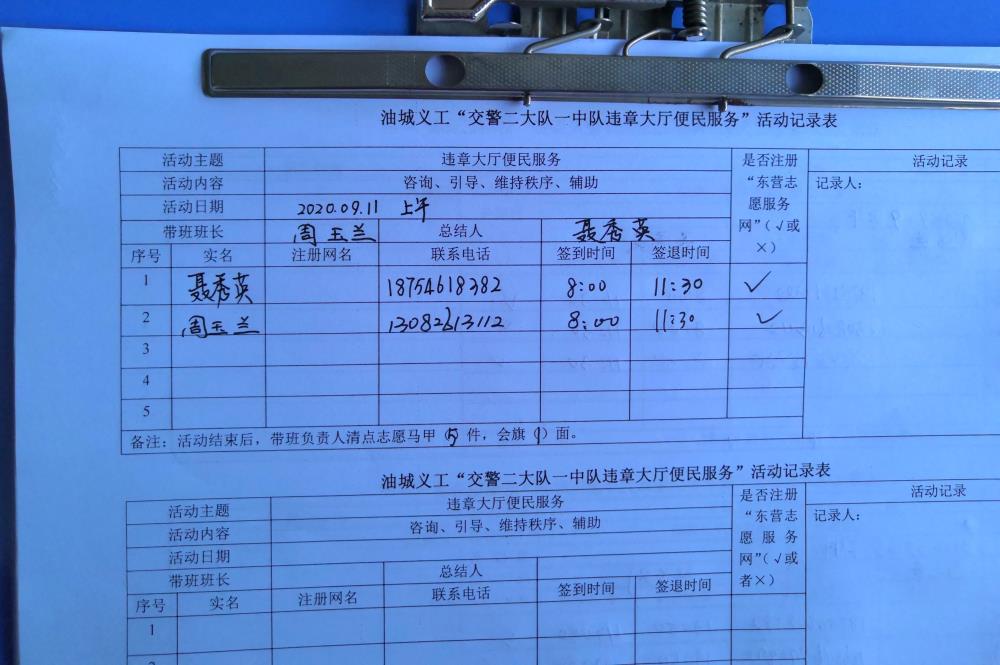 油城义工“交警二大队一中队违章大厅便民服务”活动记录表
活动主题 违章大厅便民服务 是否注册“东营志愿服务网”（√或×） 活动记录
活动内容 咨询、引导、维持秩序、辅助 记录人：
活动日期 2020.09.11 上午
带班班长 周玉兰 总结人 聂秀英
序号 实名 注册网名 联系电话 签到时间 签退时间
1 聂秀英 18754618382 8:00 11:30 ✓
2 周玉兰 13082613112 8:00 11:30 ✓
3
4
5
备注：活动结束后，带班负责人清点志愿马甲（5）件，会旗（1）面。
油城义工“交警二大队一中队违章大厅便民服务”活动记录表
活动主题 违章大厅便民服务 是否注册“东营志愿服务网”（√或者×） 活动记录
活动内容 咨询、引导、维持秩序、辅助 记录人：
活动日期
带班班长 总结人
序号 实名 注册网名 联系电话 签到时间 签退时间
1